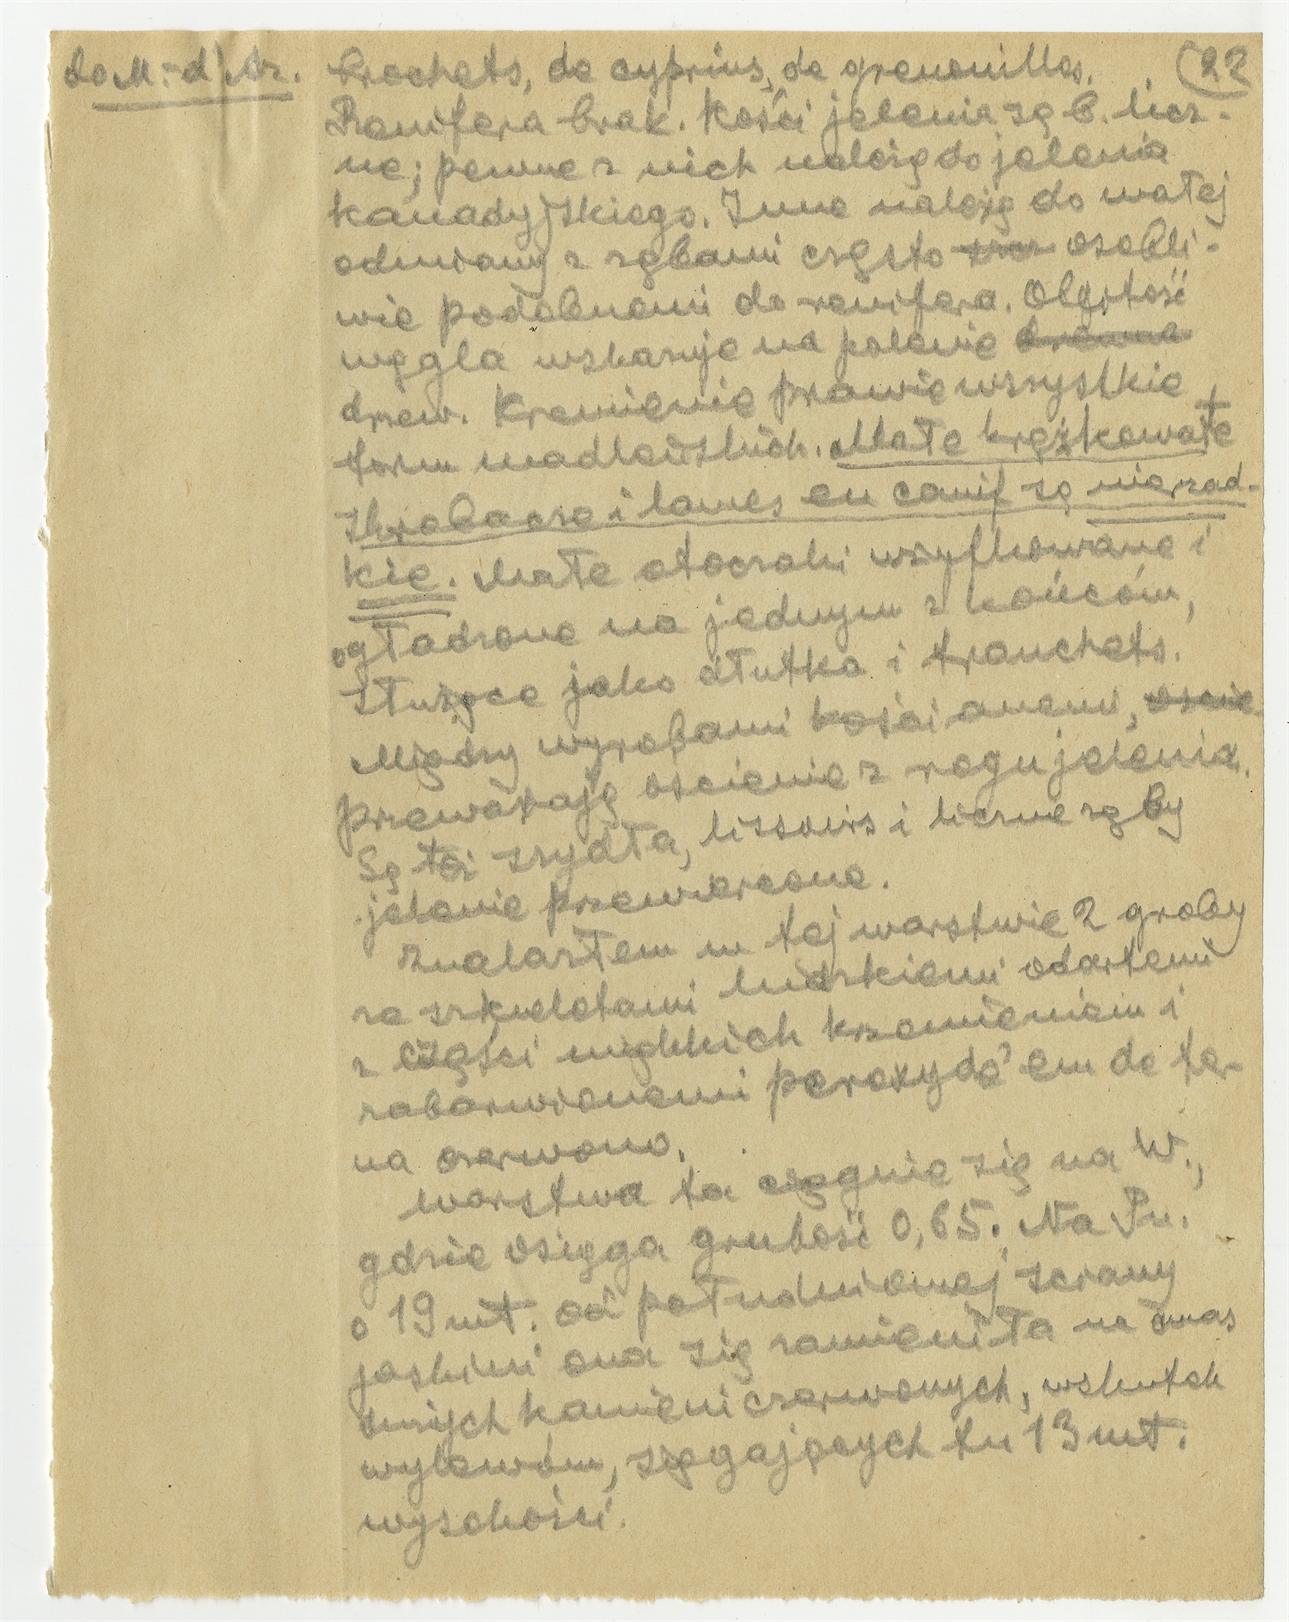 Le M.-d'Az.
(22
brochets, de cyprins, de grenouilles.
Renifera brak. Kości jelenia są b. licz-
ne; pewne z nich należą do jelenia
kanadyjskiego. Inne należą do małej
odmiany z zębami często osobli-
wie podobnemi do renifera. Obfitość
węgla wskazuje na palenie drewna
drzew. Krzemienie prawie wszystkie
form madleńskich. Małe krążkowate
skrobacze i lames en canif są nierzad-
kie. Małe otoczaki wszlifowane i
ogładzone na jednym z końców,
służące jako dłutka i tranchets.
Między wyrobami kościanemi, oście
przeważają ościenie z rogu jelenia.
Są też szydła, lissoirs i liczne zęby
jelenie przewiercone.
Znalazłem w tej warstwie 2 groby
ze szkieletami ludzkiemi odartemi
z części miękkich krzemieniem i
zabarwionemi peroxyde'em de fe-
na czerwono.
Warstwa ta ciągnie się na W.,
gdzie osiąga grubość 0,65. Na Pn.
o 19 mt. od południowej ściany
jaskini ona się zamieniła na
dużych kamieni czerwonych, wskutek
wylewów, sięgających tu 13 mt.
wysokości.